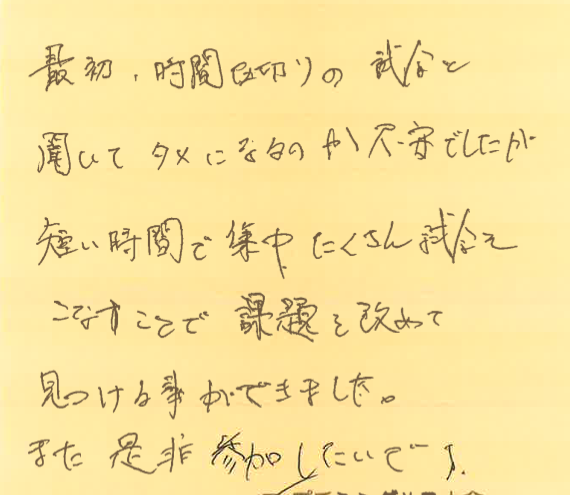 最初、時間区切りの試合と
聞いてタメになるのか不安でしたが
短い時間で集中、たくさん試合を
こなすことで課題を改めて
見つける事ができました。
また是非参加したいです。